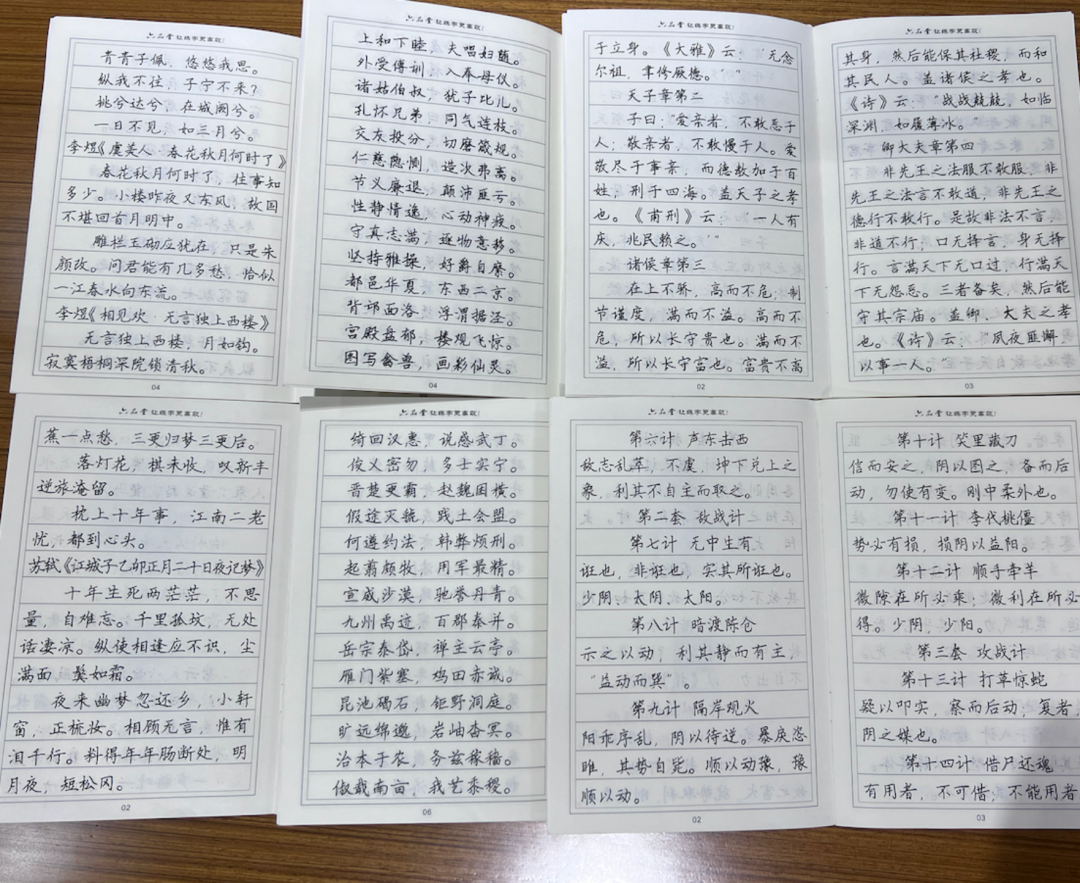 六品堂 让练字更喜欢!
青青子佩，悠悠我思。
纵我不往 子宁不来?
挑兮达兮，在城阙兮。
一日不见，如三月兮。
李煜《虞美人·春花秋月何时了》
春花秋月何时了，往事知
多少。小楼昨夜又东风，故国
不堪回首月明中。
雕栏玉砌应犹在，只是朱
颜改。问君能有几多愁，恰似
一江春水向东流。
李煜《相见欢·无言独上西楼》
无言独上西楼，月如钩。
寂寞梧桐深院锁清秋。
04
六品堂 让练字更喜欢!
上和下睦，夫唱妇随。
外受傅训，入奉母仪。
诸姑伯叔，犹子比儿。
孔怀兄弟，同气连枝。
交友投分，切磨箴规。
仁慈隐恻，造次弗离。
节义廉退，颠沛匪亏。
性静情逸，心动神疲。
守真志满，逐物意移。
坚持雅操，好爵自縻。
都邑华夏，东西二京。
背邙面洛，浮渭据泾。
宫殿盘郁，楼观飞惊。
图写禽兽，画彩仙灵。
04
六品堂 让练字更喜欢!
于立身。《大雅》云：“无念
尔祖，聿修厥德。”
天子章第二
子曰：“爱亲者，不敢恶于
人；敬亲者，不敢慢于人。爱
敬尽于事亲，而德教加于百
姓，刑于四海。盖天子之孝
也。《甫刑》云：‘一人有
庆，兆民赖之。’”
诸侯章第三
在上不骄，高而不危，制
节谨度，满而不溢。高而不
危，所以长守贵也。满而不
溢，所以长守富也。富贵不离
02
六品堂 让练字更喜欢!
其身，然后能保其社稷，而和
其民人。盖诸侯之孝也。
《诗》云：“战战兢兢，如临
深渊，如履薄冰。”
卿大夫章第四
非先王之法服不敢服，非
先王之法言不敢道，非先王之
德行不敢行。是故非法不言，
非道不行；口无择言，身无择
行。言满天下无口过，行满天
下无怨恶。三者备矣，然后能
守其宗庙。盖卿、大夫之孝
也。《诗》云：“夙夜匪懈
以事一人。”
03
蕉一点愁，三更归梦三更后。
落灯花，棋未收，叹新丰
逆旅淹留。
枕上十年事，江南二老
忧，都到心头。
苏轼《江城子乙卯正月二十日夜记梦》
十年生死两茫茫，不思
量，自难忘。千里孤坟，无处
话凄凉。纵使相逢应不识，尘
满面，鬓如霜。
夜来幽梦忽还乡，小轩
窗，正梳妆。相顾无言，惟有
泪千行。料得年年肠断处，明
月夜，短松冈。
02
六品堂 让练字更喜欢!
绮回汉惠，说感武丁。
俊义密勿，多士实宁。
晋楚更霸，赵魏困横。
假途灭虢，践土会盟。
何遵约法，韩弊烦刑。
起翦颇牧，用军最精。
宣威沙漠，驰誉丹青。
九州禹迹，百郡秦并。
岳宗泰岱，禅主云亭。
雁门紫塞，鸡田赤诚。
昆池碣石，钜野洞庭。
旷远绵邈，岩岫杳冥。
治本于农，务兹稼穑。
俶载南亩，我艺黍稷。
06
六品堂 让练字更喜欢!
第六计 声东击西
敌志乱萃，不虞，坤下兑上之
象，利其不自主而取之。
第二套 敌战计
第七计 无中生有
诳也，非诳也，实其所诳也。
少阴、太阴、太阳。
第八计 暗渡陈仓
示之以动，利其静而有主，
“益动而巽”。
第九计 隔岸观火
阳乖序乱，阴以待逆。暴戾恣
睢，其势自毙。顺以动豫，豫
顺以动。
02
六品堂 让练字更喜欢!
第十计 笑里藏刀
信而安之，阴以图之，备而后
动，勿使有变。刚中柔外也。
第十一计 李代桃僵
势必有损，损阴以益阳。
第十二计 顺手牵羊
微隙在所必乘；微利在所必
得。少阴，少阳。
第三套 攻战计
第十三计 打草惊蛇
疑以叩实，察而后动；复者，
阴之媒也。
第十四计 借尸还魂
有用者，不可借；不能用者
03